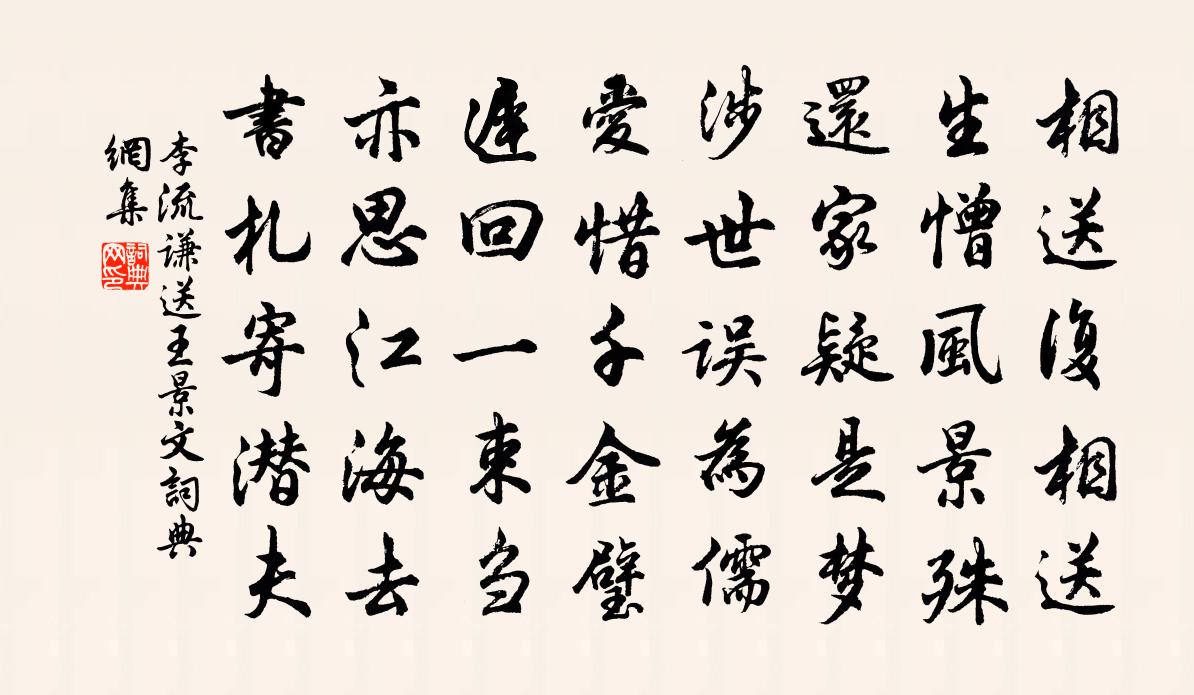 相送復相送
生憎風景殊
還家疑是梦
涉世误為儒
愛惜千金璧
遲回一束刍
亦思江海去
書札寄潜夫
李流谦送王景文詞典
網集
詞典
网印